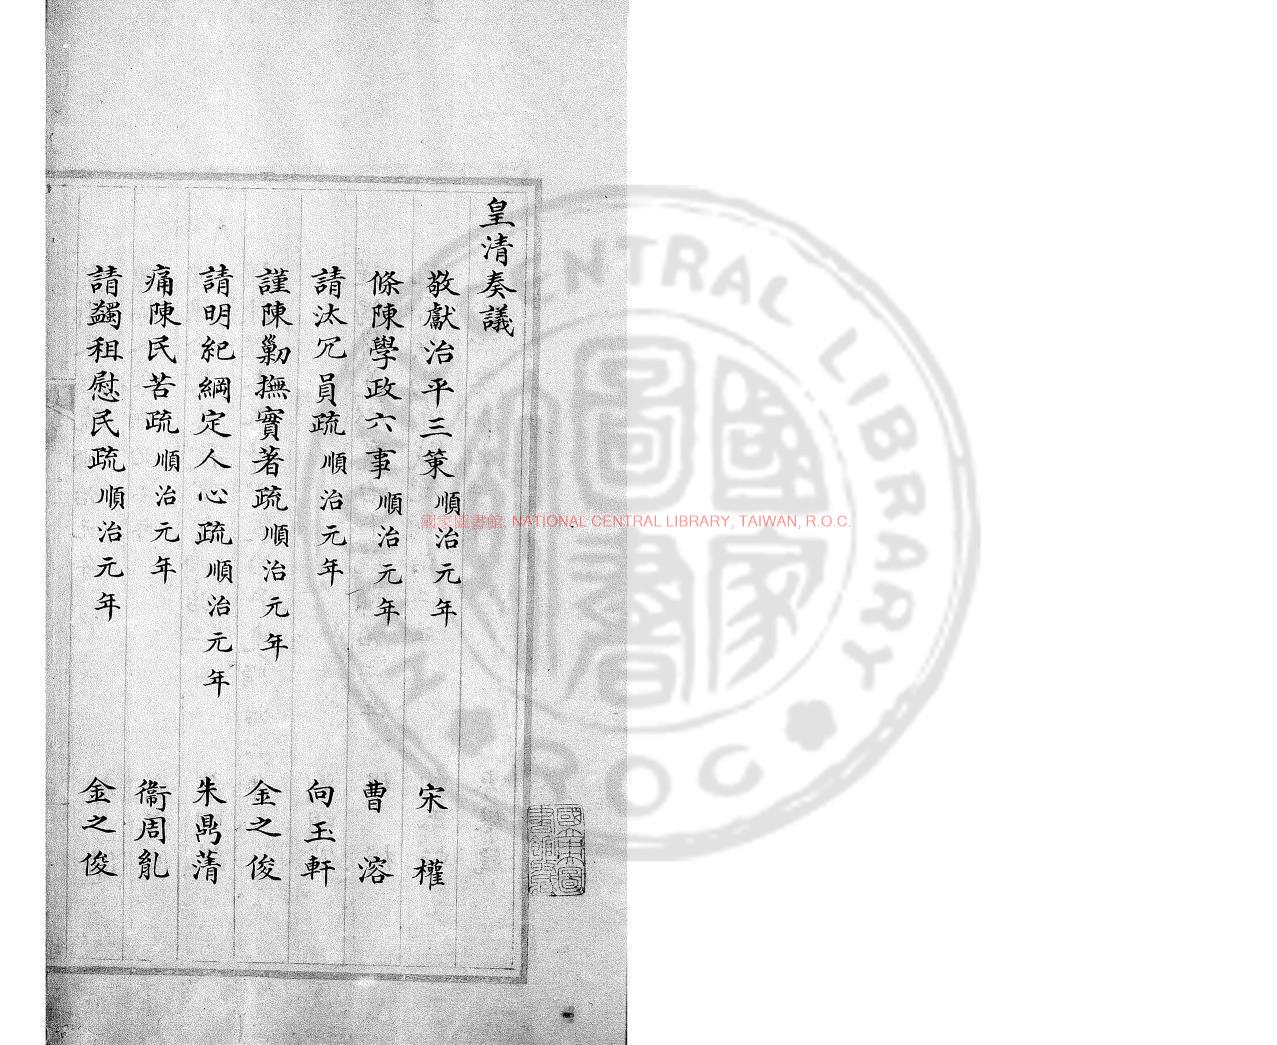 皇清奏議
敬獻治平三策順治元年 宋權
條陳學政六事順治元年 曹溶
請汰冗員疏順治元年 向玉軒
謹陳勦撫實著疏順治元年 金之俊
請明紀綱定人心疏順治元年 朱鼎蕱
痛陳民苦疏順治元年 衞周胤
請蠲租慰民疏順治元年 金之俊
國家圖書館, NATIONAL CENTRAL LIBRARY, TAIWAN, R.O.C.
NATIONAL CENTRAL LIBRARY
ROC
國家圖書館